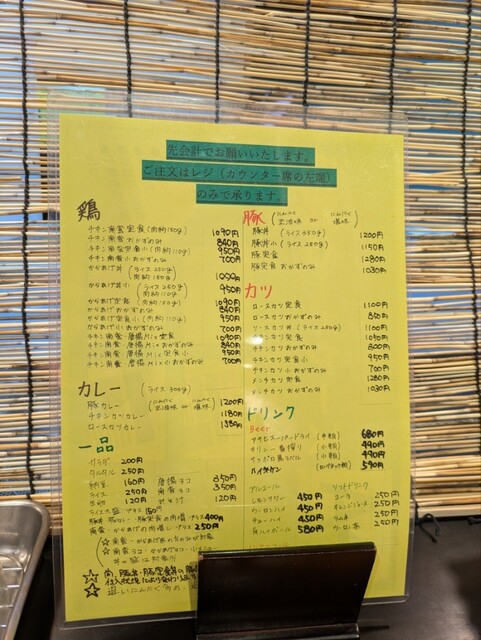 先会計でお願いいたします。
ご注文はレジ(カウンター席の左端)
のみで承ります。
鶏
チキン南蛮定食(肉約180g) 1090円
チキン南蛮おかずのみ 840円
チキン南蛮定食小(肉約110g) 950円
チキン南蛮小おかずのみ 700円
からあげ丼(ライス280g)
からあげ丼小(ライス250g) 950円
(肉約110g)
からあげ定食(肉約180g) 1090円
からあげおかずのみ 840円
からあげ定食小(肉約110g) 950円
からあげ小おかずのみ 700円
チキン南蛮・唐揚Mix定食 1090円
チキン南蛮・唐揚Mixおかずのみ 840円
チキン南蛮・唐揚Mix定食小 950円
チキン南蛮・唐揚Mix小おかずのみ 700円
カレー (ライス300g)
豚カレー 1200円
チキンカツカレー 1180円
ロースカツカレー
一品
サラダ 200円
タルタル 250円
納豆 160円
ライス 250円
生卵 120円
唐揚1コ 350円
南蛮1コ 350円
みそ汁 120円
ライス大盛・プラス 150円
400円
250円
豚
豚丼(ライス350g) 1200円
豚丼小(ライス250g) 1150円
豚定食 1280円
豚定食おかずのみ 1030円
カツ
ロースカツ定食 1100円
ロースカツおかずのみ 850円
ソースカツ丼(ライス280g) 1100円
チキンカツ定食 1050円
チキンカツおかずのみ 800円
チキンカツ定食小 950円
チキンカツ小おかずのみ 700円
メンチカツ定食 1280円
メンチカツおかずのみ 1030円
ドリンク
Beer
アサヒスーパードライ(中瓶) 680円
キリン一番搾り(小瓶) 490円
サッポロ黒ラベル(小瓶) 490円
ハイネケン 590円
アルコール
レモンサワー 450円
ウーロンハイ 450円
チューハイ 450円
角ハイボール 580円
ソフトドリンク
コーラ 250円
オレンジジュース 250円
ラムネ 250円
ウーロン茶 250円